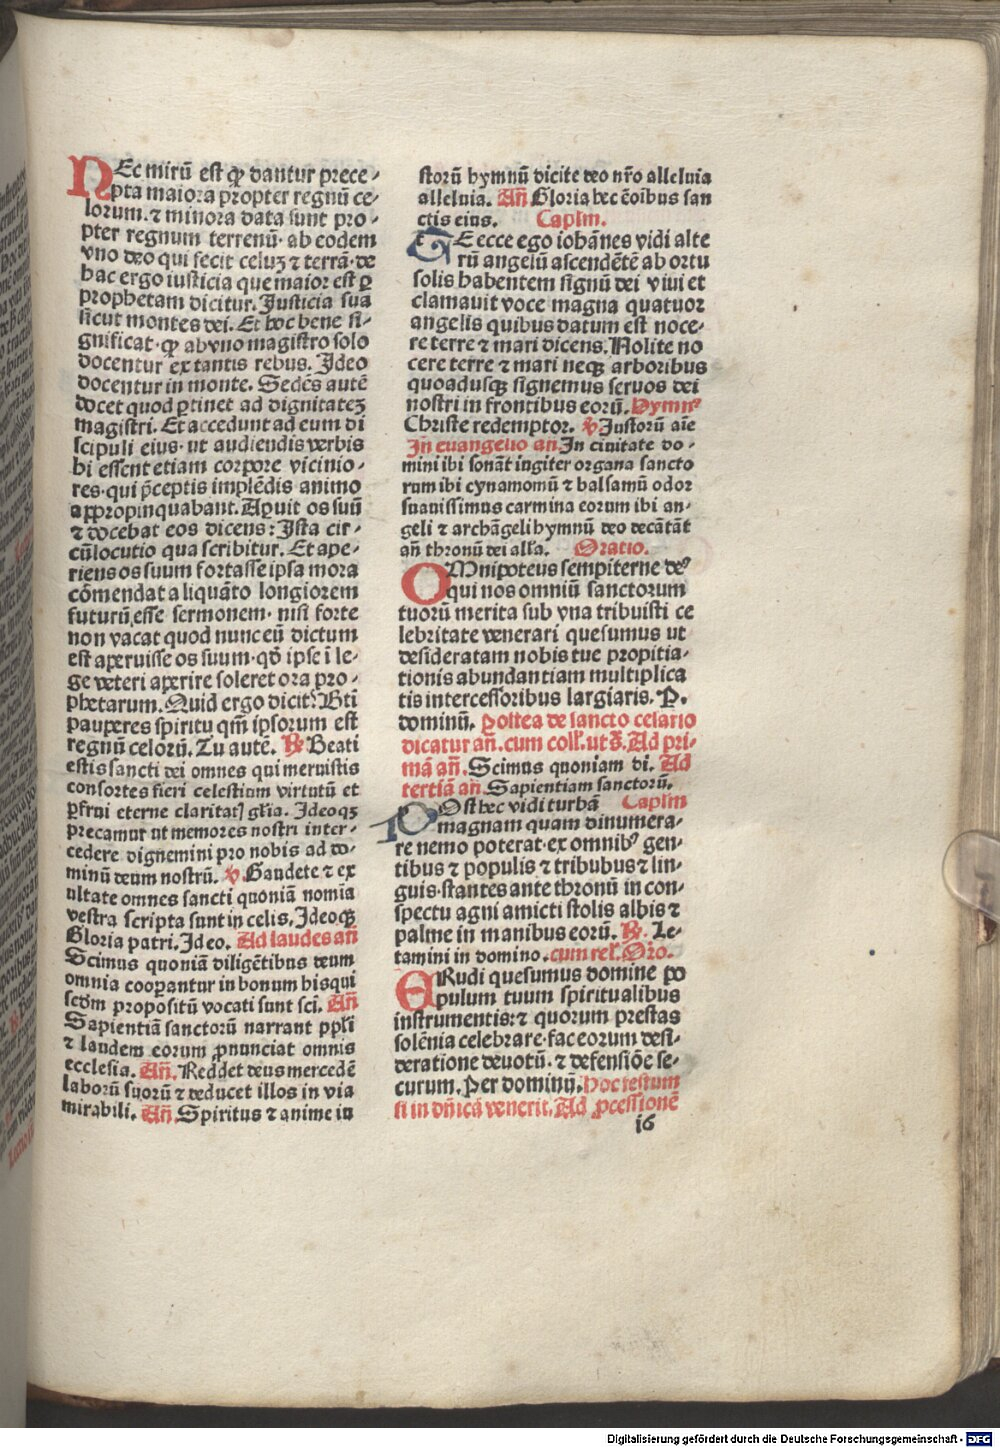 NEc mirū est qͥ dantur prece-
pta maiora propter regnū ce-
lorum. ⁊ minora data sunt pro-
pter regnum terrenū· ab eodem
vno deo qui fecit celuꝫ ⁊ terrā· de
hac ergo iusticia que maior est ꝑ
prophetam dicitur. Justicia sua
sicut montes dei. Et hoc bene si-
gnificat· ꝙ ab vno magistro solo
docentur ex tantis rebus. Jdeo
docentur in monte. Sedēs autē
docet quod ꝑtinet ad dignitateꝫ
magistri. Et accedunt ad eum di
scipuli eius· ut audiendis verbis
hi essent etiam corpore vicinio-
res· qui p̄ceptis implēdis animo
appropinquabant. Aꝑuit os suū
⁊ docebat eos dicens: Jsta cir-
cūlocutio qua scribitur. Et ape-
riens os suum fortasse ipsa mora
cōmendat aliquāto longiorem
futurū esse sermonem· nisi forte
non vacat quod nunc eū dictum
est aperuisse os suum· qđ ipse ī le-
ge veteri aperire soleret ora pro-
phetarum. Quid ergo dicit? Bti̅
pauperes spiritu qm̄ ipsorum est
regnū celorū. Tu autē. ℟ Beati
estis sancti dei omnes qui meruistis
consortes fieri celestium virtutū et
ꝑfrui eterne claritatꝭ gl̄ia. Jdeoqꝫ
precamur ut memores nostri inter-
cedere dignemini pro nobis ad do-
minū deum nostrū. ℣ Gaudete ⁊ ex
ultate omnes sancti quoniā nomīa
vestra scripta sunt in celis. Jdeoqꝫ
Gloria patri. Jdeo. Ad laudes an̄
Scimus quoniā diligētibus deum
omnia cooꝑantur in bonum his qui
scđm propositū vocati sunt sci̅. An̄
Sapientiā sanctorū narrant ppl̄i
⁊ laudem eorum ꝓnunciat omnis
ecclesia. An̄. Reddet deus mercedē
laborū suorū ⁊ deducet illos in via
mirabili. An̄ Spiritus ⁊ anime iu
storū hymnū dicite deo nr̄o alleluia
alleluia. An̄ Gloria hec ē oībus san
ctis eius. Caplm̄.
ET ecce ego iohānes vidi alte
rū angelū ascendētē ab ortu
solis habentem signū dei viui et
clamauit voce magna quatuor
angelis quibus datum est noce-
re terre ⁊ mari dicens. Nolite no
cere terre ⁊ mari neqꝫ arboribus
quoadusqꝫ signemus seruos dei
nostri in frontibus eorū. Hymnꝰ
Christe redemptor. ℣ Justorū aīe
Jn̄ euangelio an̄. Jn ciuitate do-
mini ibi sonāt iugiter organa sancto
rum ibi cynamomū ⁊ balsamū odor
suauissimus carmina eorum ibi an-
geli ⁊ archāgeli hymnū deo decātāt
an̄ thronū dei all̄a. Oratio.
OMnipoteus sempiterne deꝰ
qui nos omniū sanctorum
tuorū merita sub vna tribuisti ce
lebritate venerari quesumus ut
desideratam nobis tue propitia-
tionis abundantiam multiplica
tis intercessoribus largiaris. P.
dominū. Postea de sancto cesario
dicatur an̄. cum coll̄. ut s̄. Ad pri-
mā an̄. Scimus quoniam di. Ad
tertiā an̄ Sapientiam sanctorū.
POst hec vidi turbā Caplm̄
magnam quam dinumera-
re nemo poterat· ex omnibꝰ gen-
tibus ⁊ populis ⁊ tribubus ⁊ lin-
guis· stantes ante thronū in con-
spectu agni amicti stolis albis ⁊
palme in manibus eorū. ℟. Le-
tamini in domino. cum rel̄. Or̄o.
ERudi quesumus domine po
pulum tuum spiritualibus
instrumentis: ⁊ quorum prestas
solēnia celebrare· fac eorum desi-
deratione deuotū. ⁊ defensiōe se-
curum. Per dominū. Hoc festum
si in dn̄ica venerit. Ad ꝓcessionē
i6
Digitalisierung gefördert durch die Deutsche Forschungsgemeinschaft - DFG